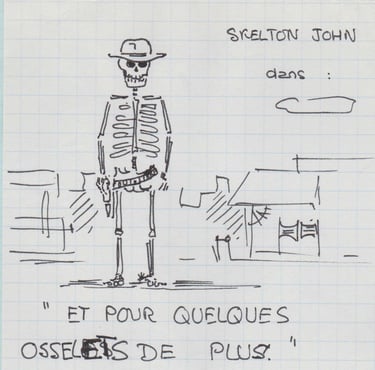 SKELTON JOHN
dans :
" ET POUR QUELQUES
OSSELETS DE PLUS. "